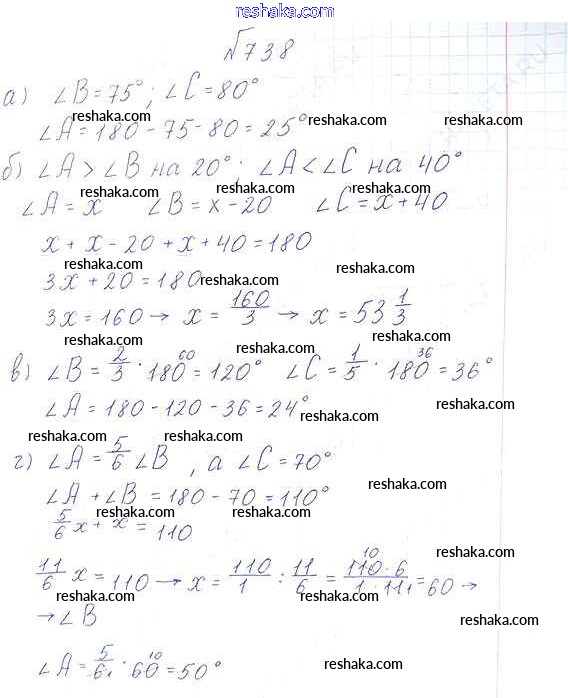 reshaka.com
№738
а) ∠B = 75°; ∠C = 80°
reshaka.com
∠A = 180 - 75 - 80 = 25° reshaka.com reshaka.com
б) ∠A > ∠B на 20° · ∠A < ∠C на 40°
reshaka.com reshaka.com reshaka.com
∠A = x ∠B = x - 20 ∠C = x + 40
x + x - 20 + x + 40 = 180
reshaka.com reshaka.com
3x + 20 = 180 reshaka.com
3x = 160 → x = 160/3 → x = 53 1/3
reshaka.com reshaka.com
в) ∠B = 2/3 · 180 60 = 120° ∠C = 1/5 · 180 36 = 36°
reshaka.com reshaka.com
∠A = 180 - 120 - 36 = 24° reshaka.com
reshaka.com reshaka.com
г) ∠A = 5/6 ∠B , а ∠C = 70°
reshaka.com
∠A + ∠B = 180 - 70 = 110°
reshaka.com reshaka.com
5/6 x + x = 110
reshaka.com
11/6 x = 110 → x = 110/1 : 11/6 = 110 10 · 6 / 1 · 11 1 = 60 →
reshaka.com reshaka.com
→ ∠B
reshaka.com
∠A = 5/6 1 · 60 10 = 50°
reshaka.com